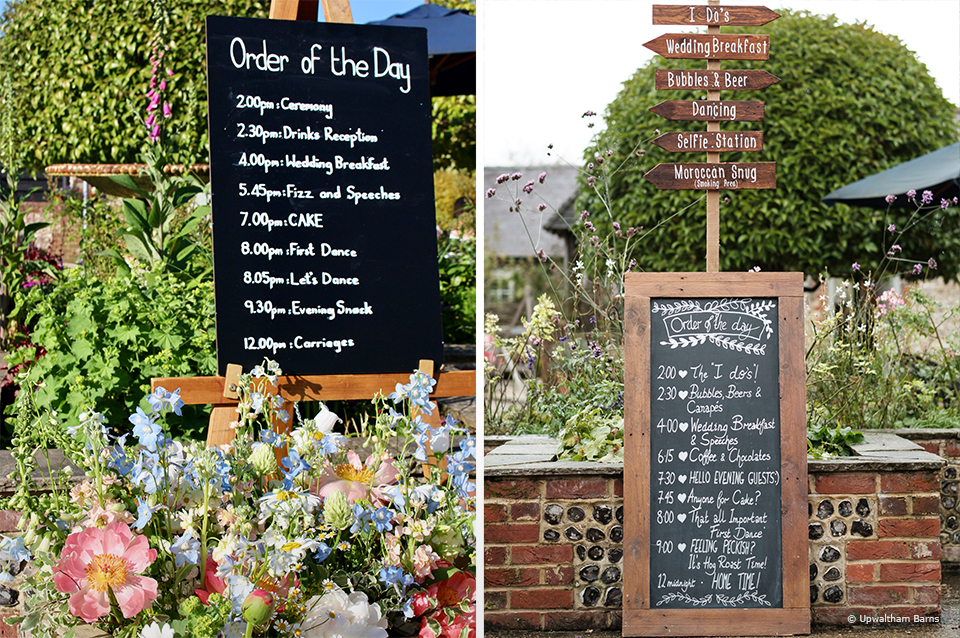 Order of the Day
2.00pm: Ceremony
2.30pm: Drinks Reception
4.00pm: Wedding Breakfast
5.45pm: Fizz and Speeches
7.00pm: CAKE
8.00pm: First Dance
8.05pm: Let's Dance
9.30pm: Evening Snack
12.00pm: Carriages
I Do's
Wedding Breakfast
Bubbles & Beer
Dancing
Selfie Station
Moroccan Snug
(Smoking Area)
Order of the day
2.00 ♥ The 'I do's'!
2:30 ♥ Bubbles, Beers &
Canapés
4:00 ♥ Wedding Breakfast
& Speeches
6:15 ♥ Coffee & Chocolates
7:30 ♥ HELLO EVENING GUESTS!)
7:45 ♥ Anyone for Cake?
8:00 ♥ 'That all Important
First Dance'
9:00 ♥ FEELING PECKISH?
It's Hog Roast Time!
12 midnight - HOME TIME!
© Upwaltham Barns